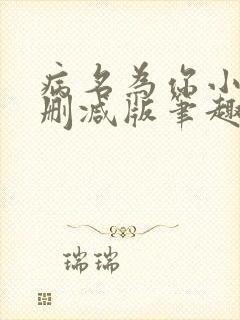 病名为你小
删减版笔趣
瑞瑞